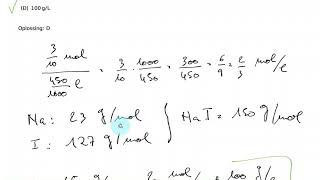 (D) 100 g/L
Oplossing: D
3/10 mol / 450/1000 l = 3/10 · 1000/450 = 300/450 = 6/9 = 2/3 mol/l
Na: 23 g/mol } NaI = 150 g/mol
I: 127 g/mol